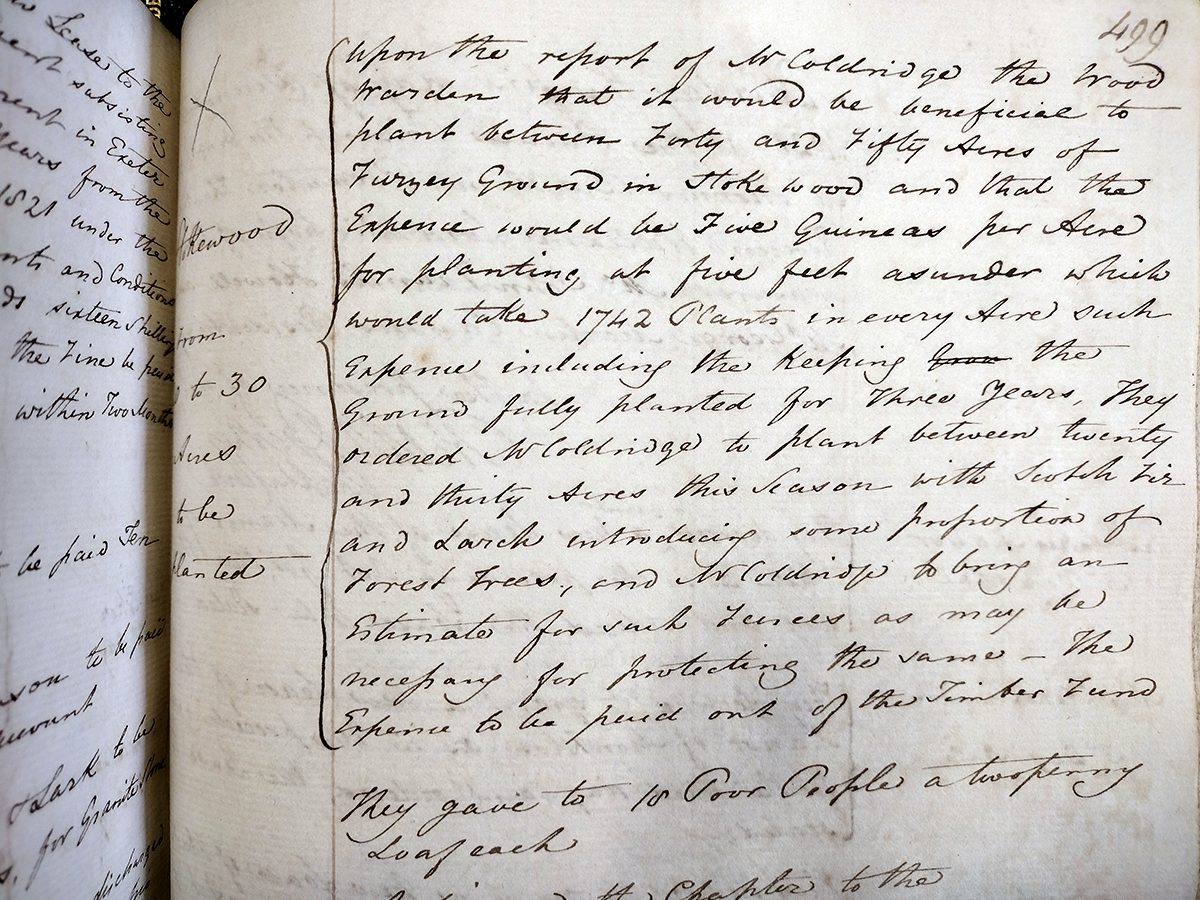 Lease to the
subsisting
in Exeter
years from the
1821 under the
and Conditions
sixteen Shillings
the Fine be
within Two Months
be paid Ten
to be paid
Lark to be
for Granite
discharged
499
Stokewood
from
to 30
Acres
to be
planted
Upon the report of Mr Coldridge the Wood
Warden that it would be beneficial to
plant between Forty and Fifty Acres of
Furzey Ground in Stoke wood and that the
Expence would be Five Guineas per Acre
for planting at five feet asunder which
would take 1742 Plants in every Acre such
Expence including the Keeping the
Ground fully planted for Three Years, They
ordered Mr Coldridge to plant between twenty
and thirty Acres this Season with Scotch Fir
and Larch introducing some proportion of
Forest Trees, and Mr Coldridge to bring an
Estimate for such Fences as may be
necessary for protecting the same – The
Expence to be paid out of the Timber Fund
They gave to 18 Poor People a twopenny
Loaf each
the Chapter to the